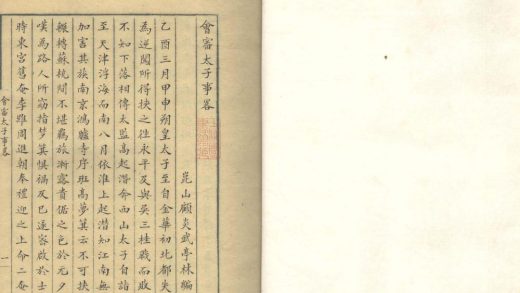 會審太子事畧
崑山顧炎武亭林編
乙酉三月甲申朔皇太子至自金華初北都失
為逆闖所得挾之往永平及與吳三桂戰而敗
不知下落相傳太監高起潛奔西山太子自詣
至天津浮海而南八月依淮上起潛知江南無
加害其姪南京鴻臚寺序班高夢箕云不可挾
輾轉蘇杭間不堪羈旅漸露貴倨之色於元夕
嘆為路人所竊指夢箕懼禍及已遂密啟於士
時東宮舊奄李繼周進朝奉禮迎之上命二奄
會審太子事畧
一